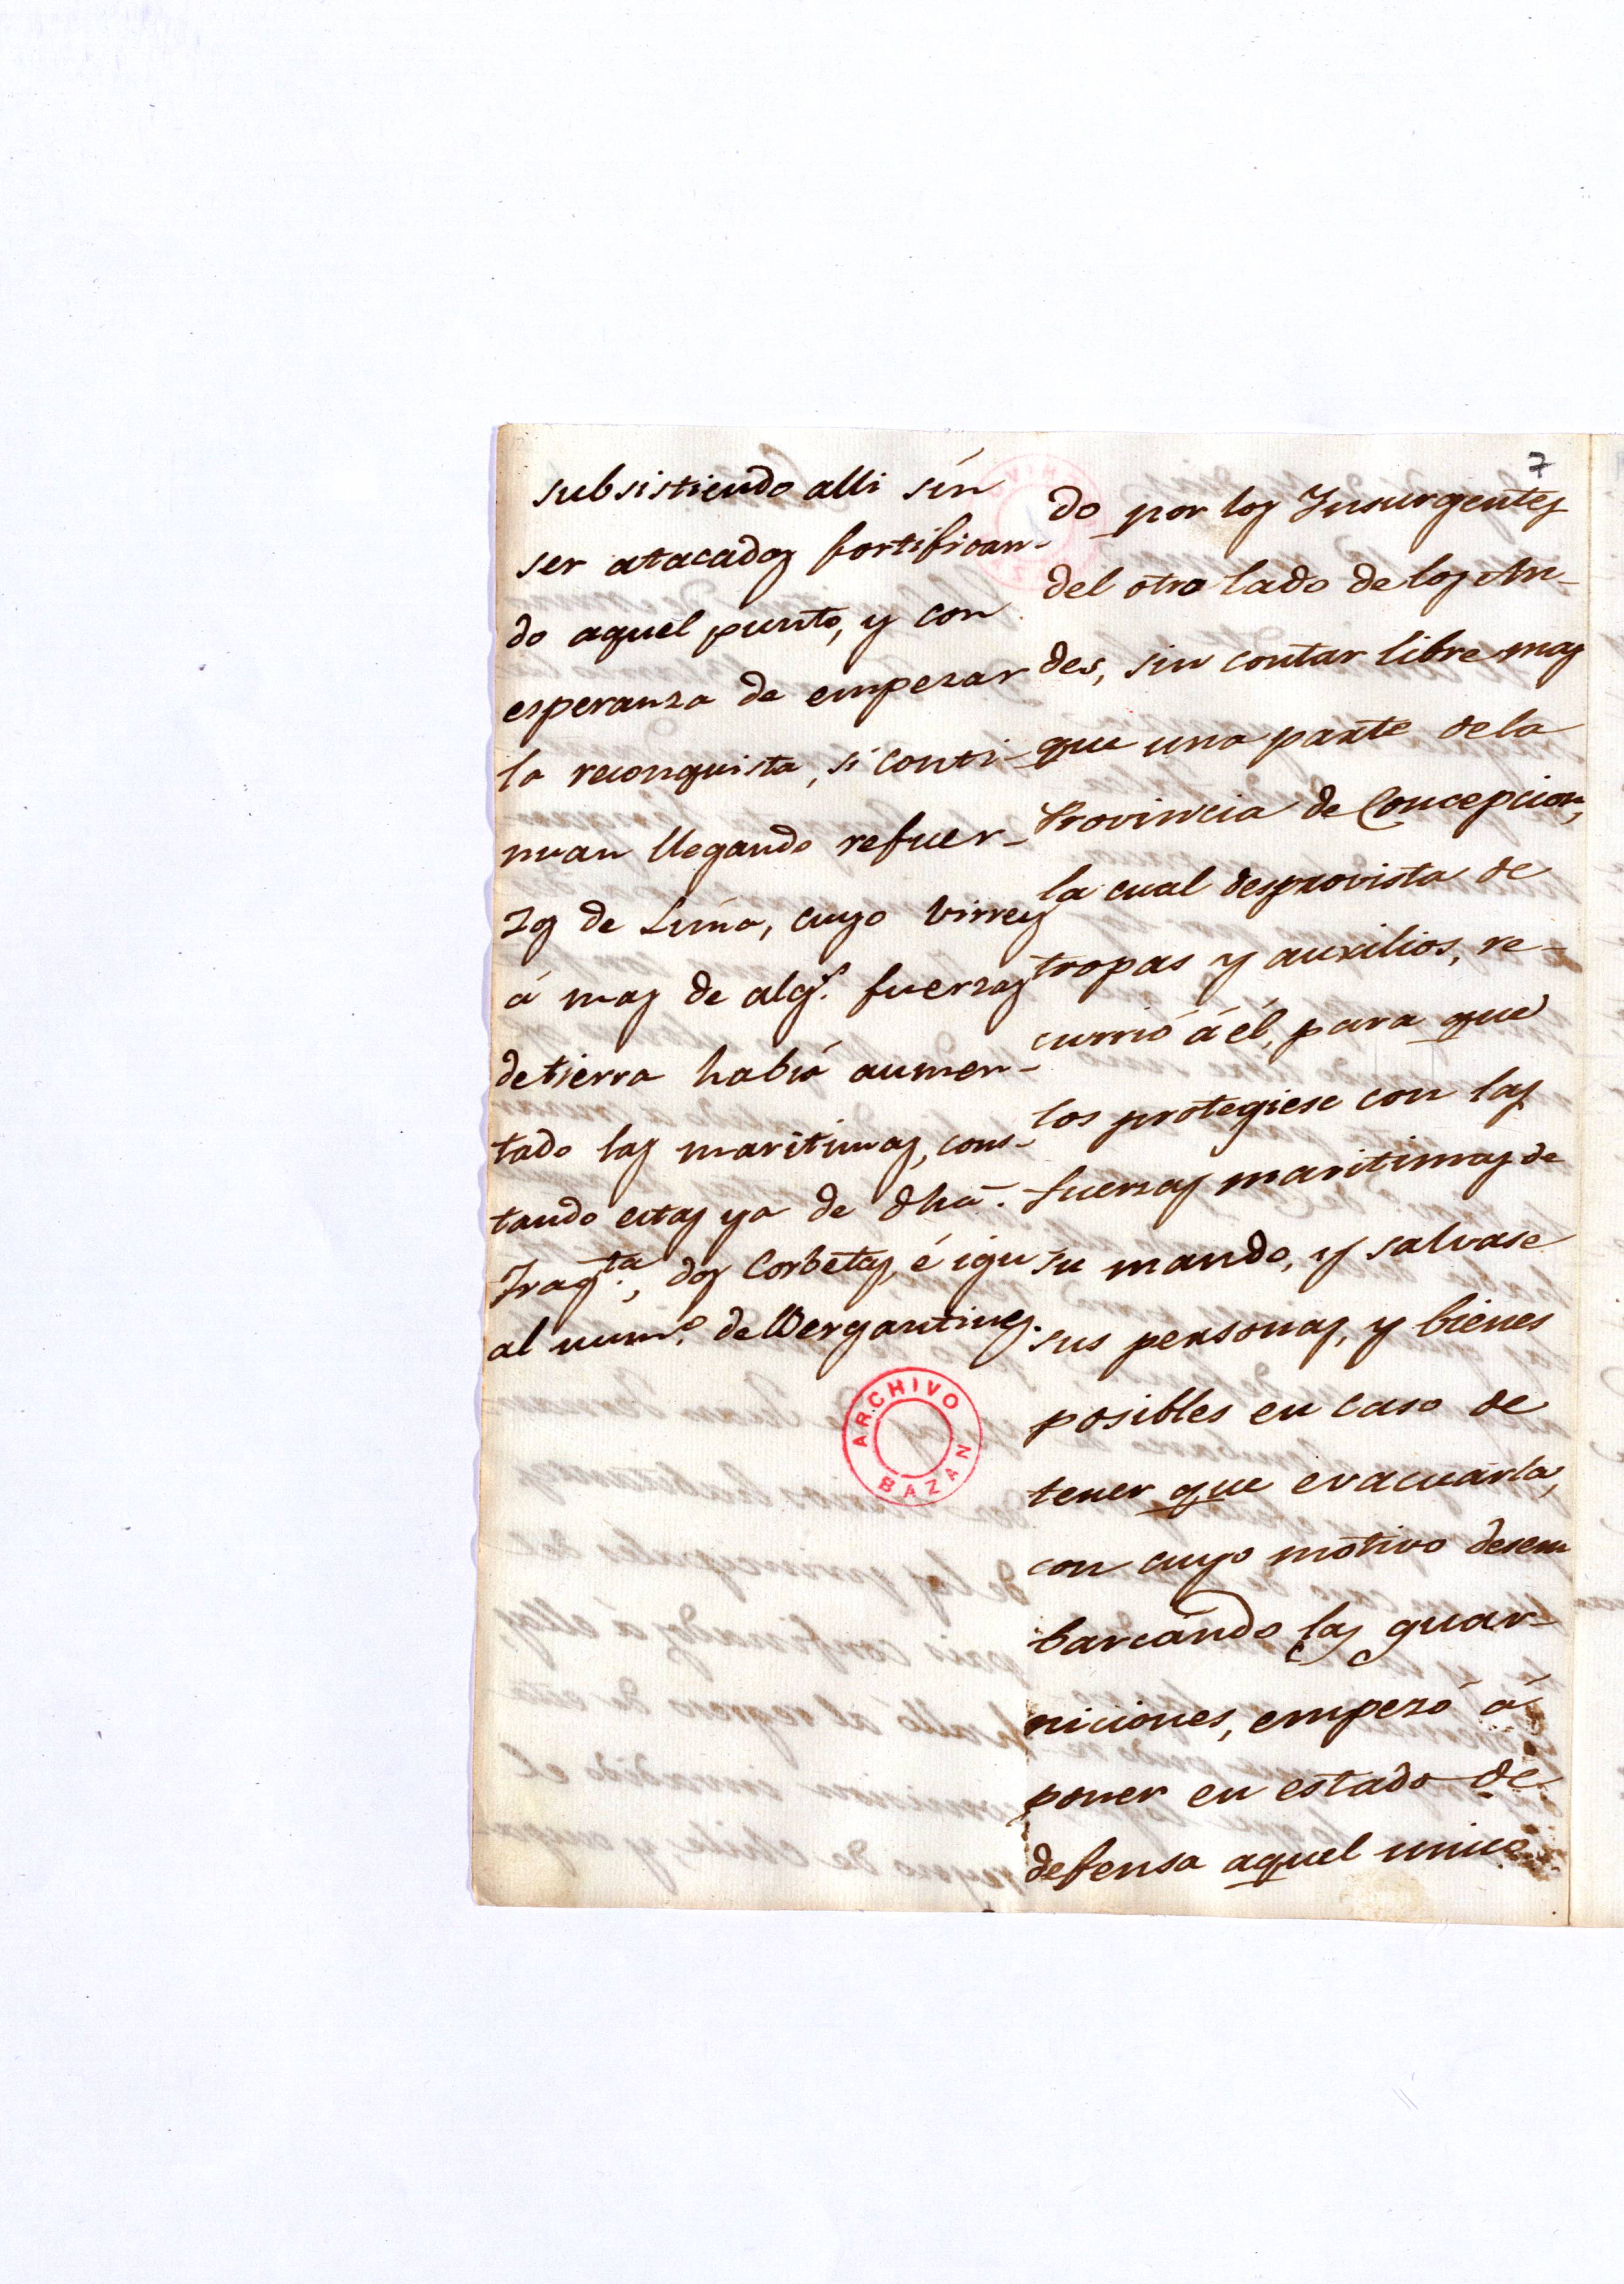 7
subsistiendo alli sin
ser atacados fortifican-
do aquel punto, y con
esperanza de empezar
la reconquista, si conti-
nuan llegando refuer-
zos de Lima, cuyo Virrey
á mas de algs. fuerzas
de tierra habia aumen-
tado las maritimas, cons-
tando estas ya de dha.
Fragta., dos Corbetas, é igu
al numo. de Bergantines.
ARCHIVO
BAZAN
do por los Insurgentes
del otro lado de los An-
des, sin contar libre mas
que una parte de la
Provincia de Concepcion,
la cual desprovista de
tropas y auxilios, re-
currió á él, para que
los protegiese con las
fuerzas maritimas de
su mando, y salvase
sus personas, y bienes
posibles en caso de
tener que evacuarla,
con cuyo motivo desem
barcando las guar-
niciones, empezó á
poner en estado de
defensa aquel unico